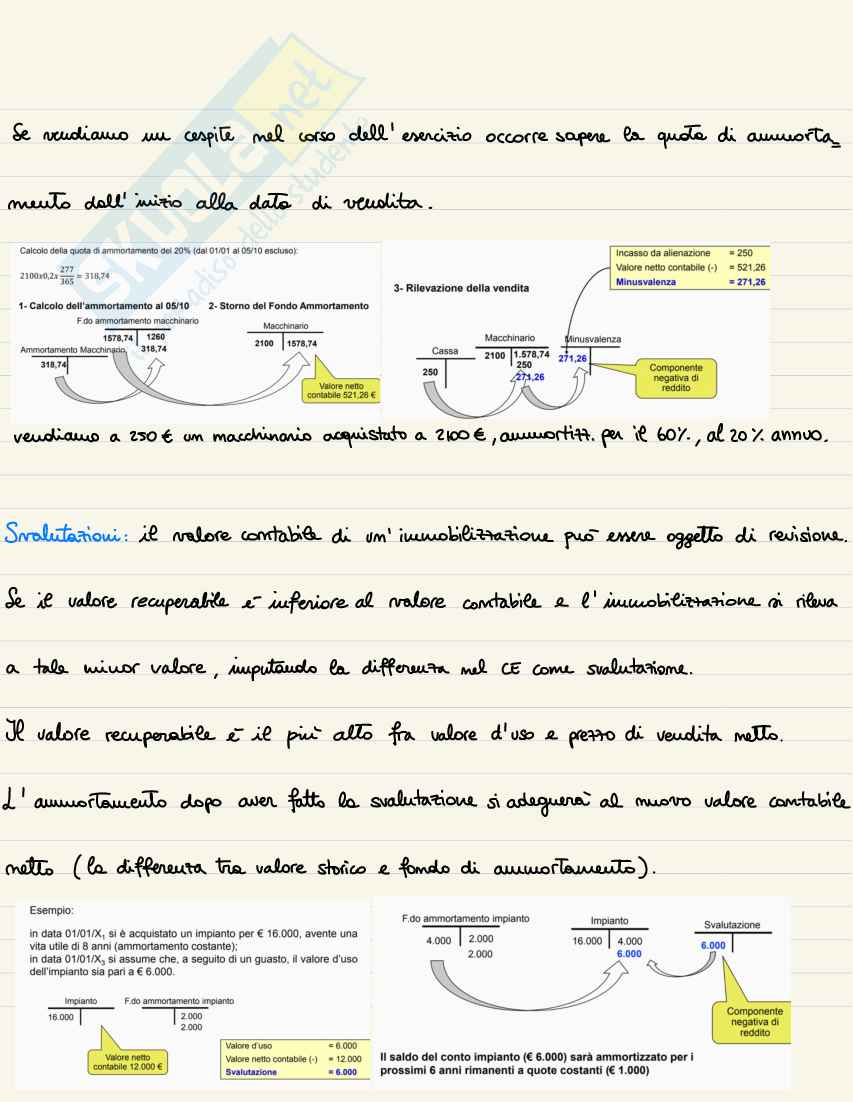 SKUOLA.net
paradiso dello studente
Se vendiamo un cespite nel corso dell'esercizio occorre sapere la quota di ammorta=
mento dall'inizio alla data di vendita.
Calcolo della quota di ammortamento del 20% (dal 01/01 al 05/10 escluso):
2100x0,2x 277/365 = 318,74
1- Calcolo dell'ammortamento al 05/10
F.do ammortamento macchinario
1578,74 1260
318,74
Ammortamento Macchinario
318,74
2- Storno del Fondo Ammortamento
Macchinario
2100 1578,74
Valore netto
contabile 521,26 €
3- Rilevazione della vendita
Incasso da alienazione = 250
Valore netto contabile (-) = 521,26
Minusvalenza = 271,26
Cassa
250
Macchinario
2100 1.578,74
250
271,26
Minusvalenza
271,26
Componente
negativa di
reddito
vendiamo a 250 € un macchinario acquistato a 2100 €, ammortizz. per il 60%, al 20% annuo.
Svalutazioni: il valore contabile di un'immobilizzazione può essere oggetto di revisione.
Se il valore recuperabile è inferiore al valore contabile e l'immobilizzazione si rileva
a tale minor valore, imputando la differenza nel CE come svalutazione.
Il valore recuperabile è il più alto fra valore d'uso e prezzo di vendita netto.
L'ammortamento dopo aver fatto la svalutazione si adeguerà al nuovo valore contabile
netto (la differenza tra valore storico e fondo di ammortamento).
Esempio:
in data 01/01/X1 si è acquistato un impianto per € 16.000, avente una
vita utile di 8 anni (ammortamento costante);
in data 01/01/X3 si assume che, a seguito di un guasto, il valore d'uso
dell'impianto sia pari a € 6.000.
Impianto
16.000
F.do ammortamento impianto
2.000
2.000
Valore netto
contabile 12.000 €
Valore d'uso = 6.000
Valore netto contabile (-) = 12.000
Svalutazione = 6.000
F.do ammortamento impianto
4.000 2.000
2.000
Impianto
16.000 4.000
6.000
Svalutazione
6.000
Componente
negativa di
reddito
Il saldo del conto impianto (€ 6.000) sarà ammortizzato per i
prossimi 6 anni rimanenti a quote costanti (€ 1.000)